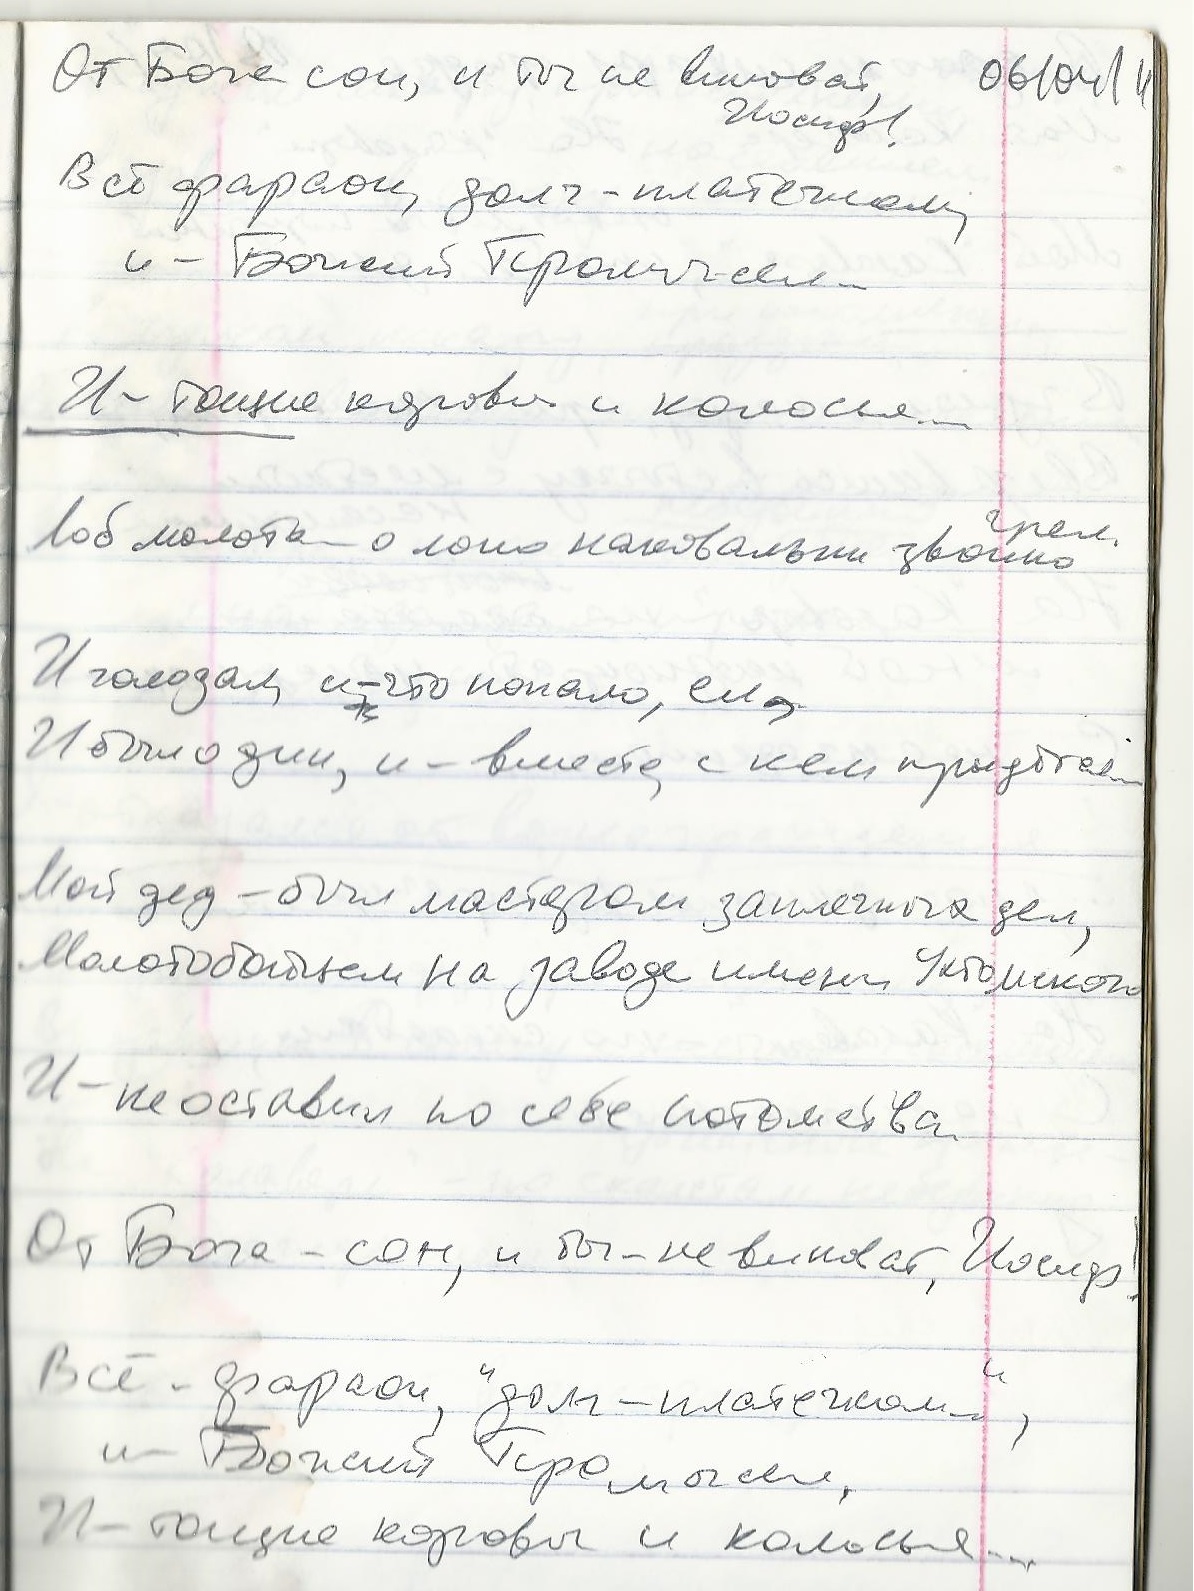 От Бога сон, и ты не виноват, 06/04/11
Иосиф!
Всё фараон, долг-платежом,
и - Божий Промысел...
И - тощие коровы и колосья...
грел.
Лоб молота о лоно наковальни звонко
И голодал, и - что попало, ел,
И был один, и - вместе, с кем придётся...
Мой дед - был мастером заплечных дел,
Молотобойцем на заводе имени Ухтомского
И - не оставил по себе потомства.
От Бога - сон, и ты - не виноват, Иосиф!
Всё - фараон, "долг - платежом...",
и - Божий Промысел,
И - тощие коровы и колосья...